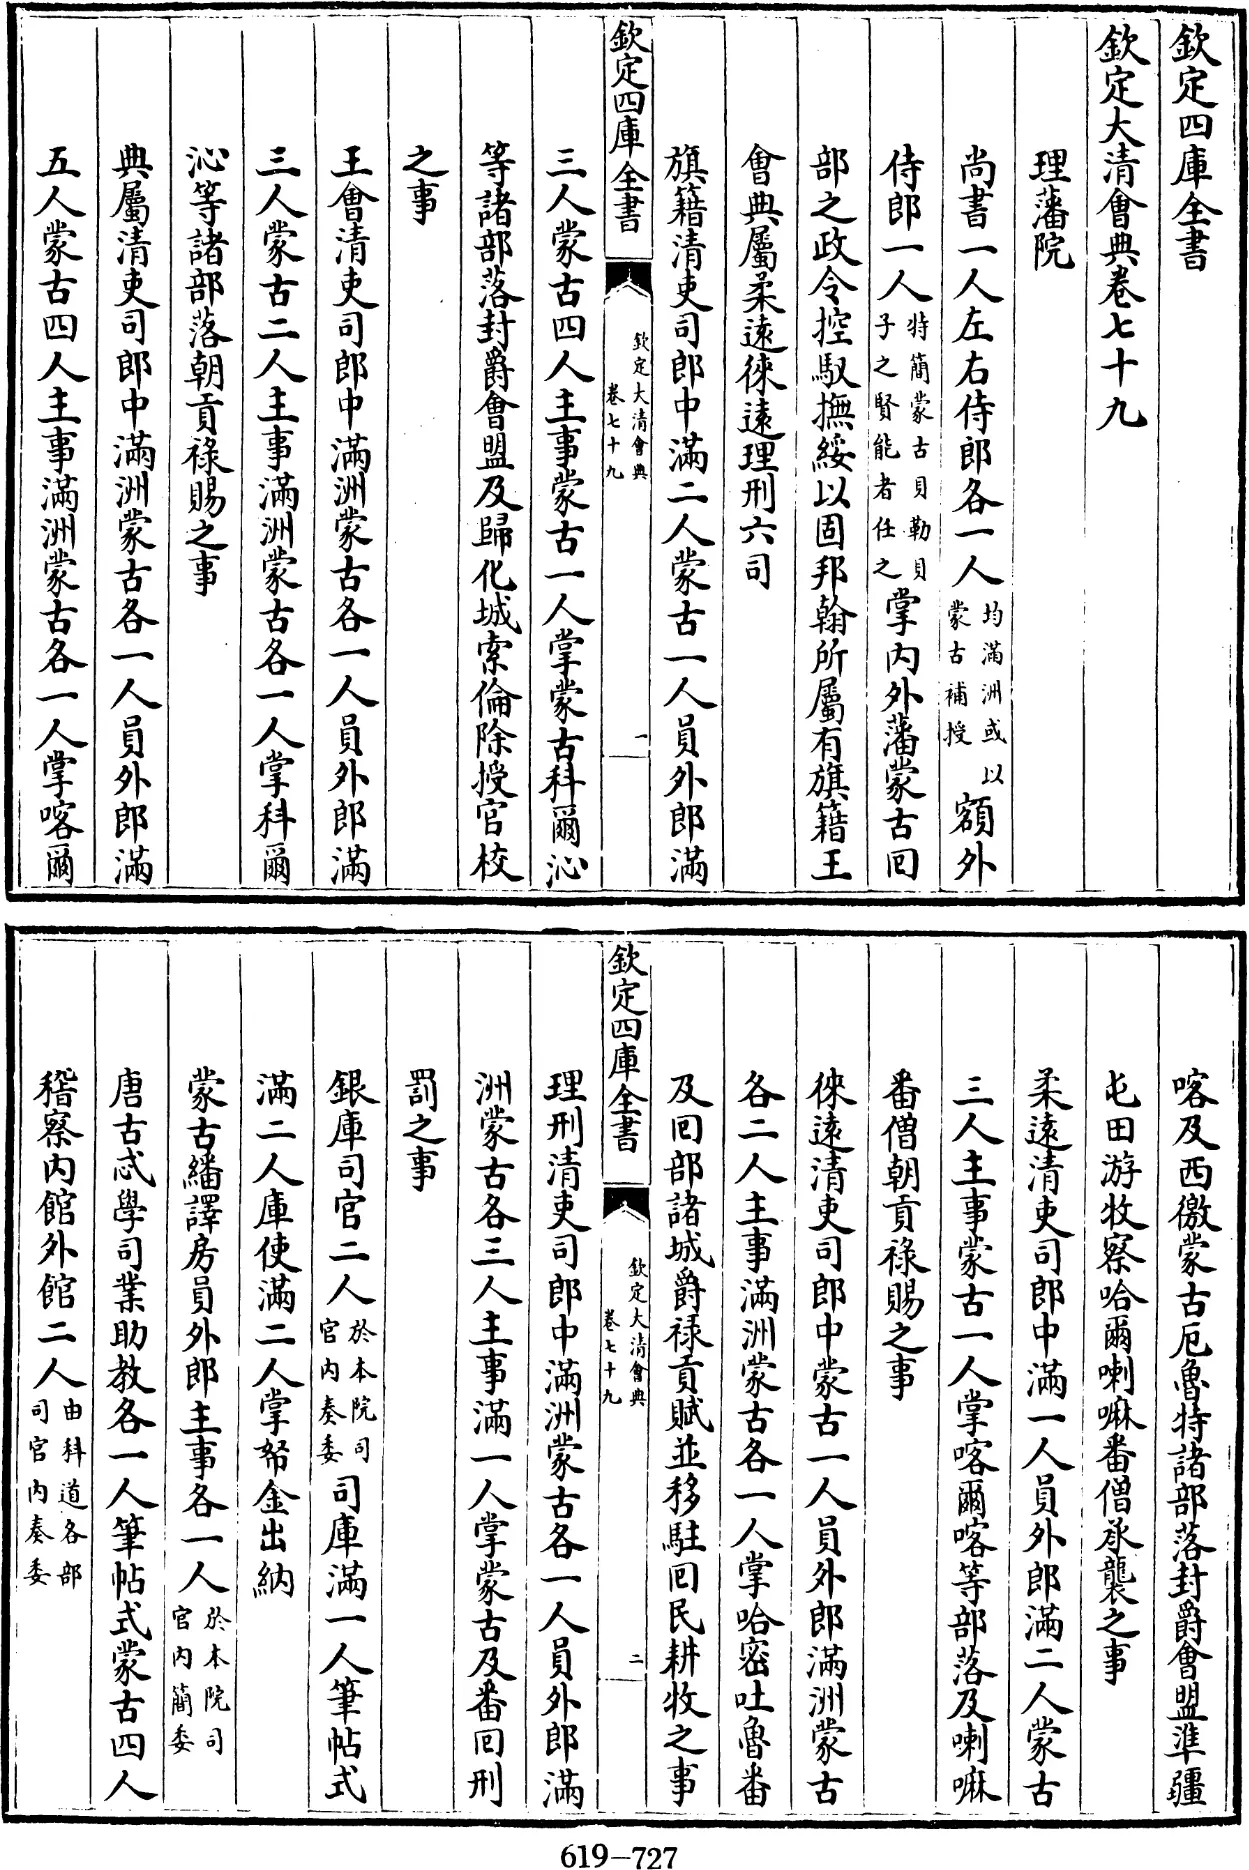 欽定四庫全書
欽定大清會典卷七十九
理藩院
尚書一人左右侍郎各一人均滿洲或以蒙古補授額外
侍郎一人特簡蒙古貝勒貝子之賢能者任之掌内外藩蒙古回
部之政令控馭撫綏以固邦翰所屬有旗籍王
會典屬柔遠徠遠理刑六司
旗籍清吏司郎中滿二人蒙古一人員外郎滿
欽定四庫全書
欽定大清會典
卷七十九
一
三人蒙古四人主事蒙古一人掌蒙古科爾沁
等諸部落封爵會盟及歸化城索倫除授官校
之事
王會清吏司郎中滿洲蒙古各一人員外郎滿
三人蒙古二人主事滿洲蒙古各一人掌科爾
沁等諸部落朝貢祿賜之事
典屬清吏司郎中滿洲蒙古各一人員外郎滿
五人蒙古四人主事滿洲蒙古各一人掌喀爾
喀及西徼蒙古厄魯特諸部落封爵會盟準疆
屯田游牧察哈爾喇嘛番僧承襲之事
柔遠清吏司郎中滿一人員外郎滿二人蒙古
三人主事蒙古一人掌喀爾喀等部落及喇嘛
番僧朝貢祿賜之事
徠遠清吏司郎中蒙古一人員外郎滿洲蒙古
各二人主事滿洲蒙古各一人掌哈密吐魯番
及回部諸城爵祿貢賦並移駐回民耕牧之事
欽定四庫全書
欽定大清會典
卷七十九
二
理刑清吏司郎中滿洲蒙古各一人員外郎滿
洲蒙古各三人主事滿一人掌蒙古及番回刑
罰之事
銀庫司官二人於本院司官内奏委司庫滿一人筆帖式
滿二人庫使滿二人掌帑金出納
蒙古繙譯房員外郎主事各一人於本院司官内簡委
唐古忒學司業助教各一人筆帖式蒙古四人
稽察内館外館二人由科道各部司官内奏委
619-727